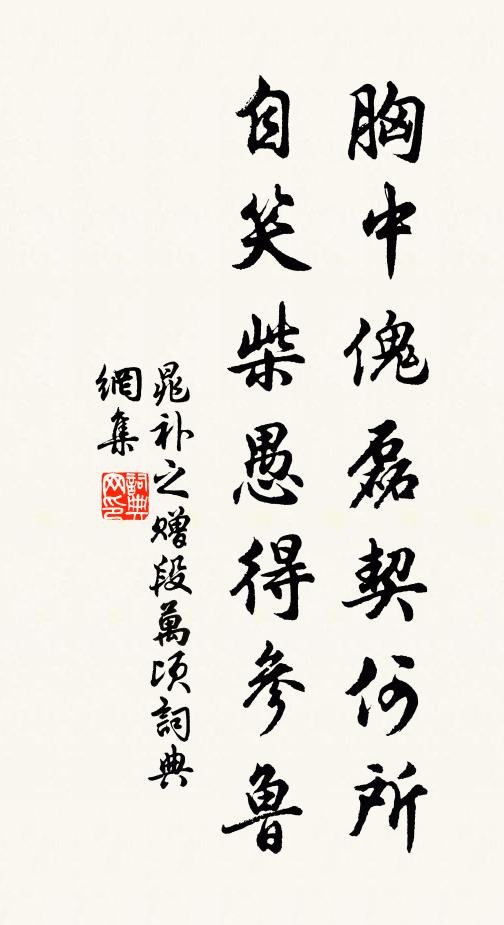 胸中傀磊契何所
自笑柴愚得參魯
晁补之赠段萬頃詞典
網集
詞典
网印